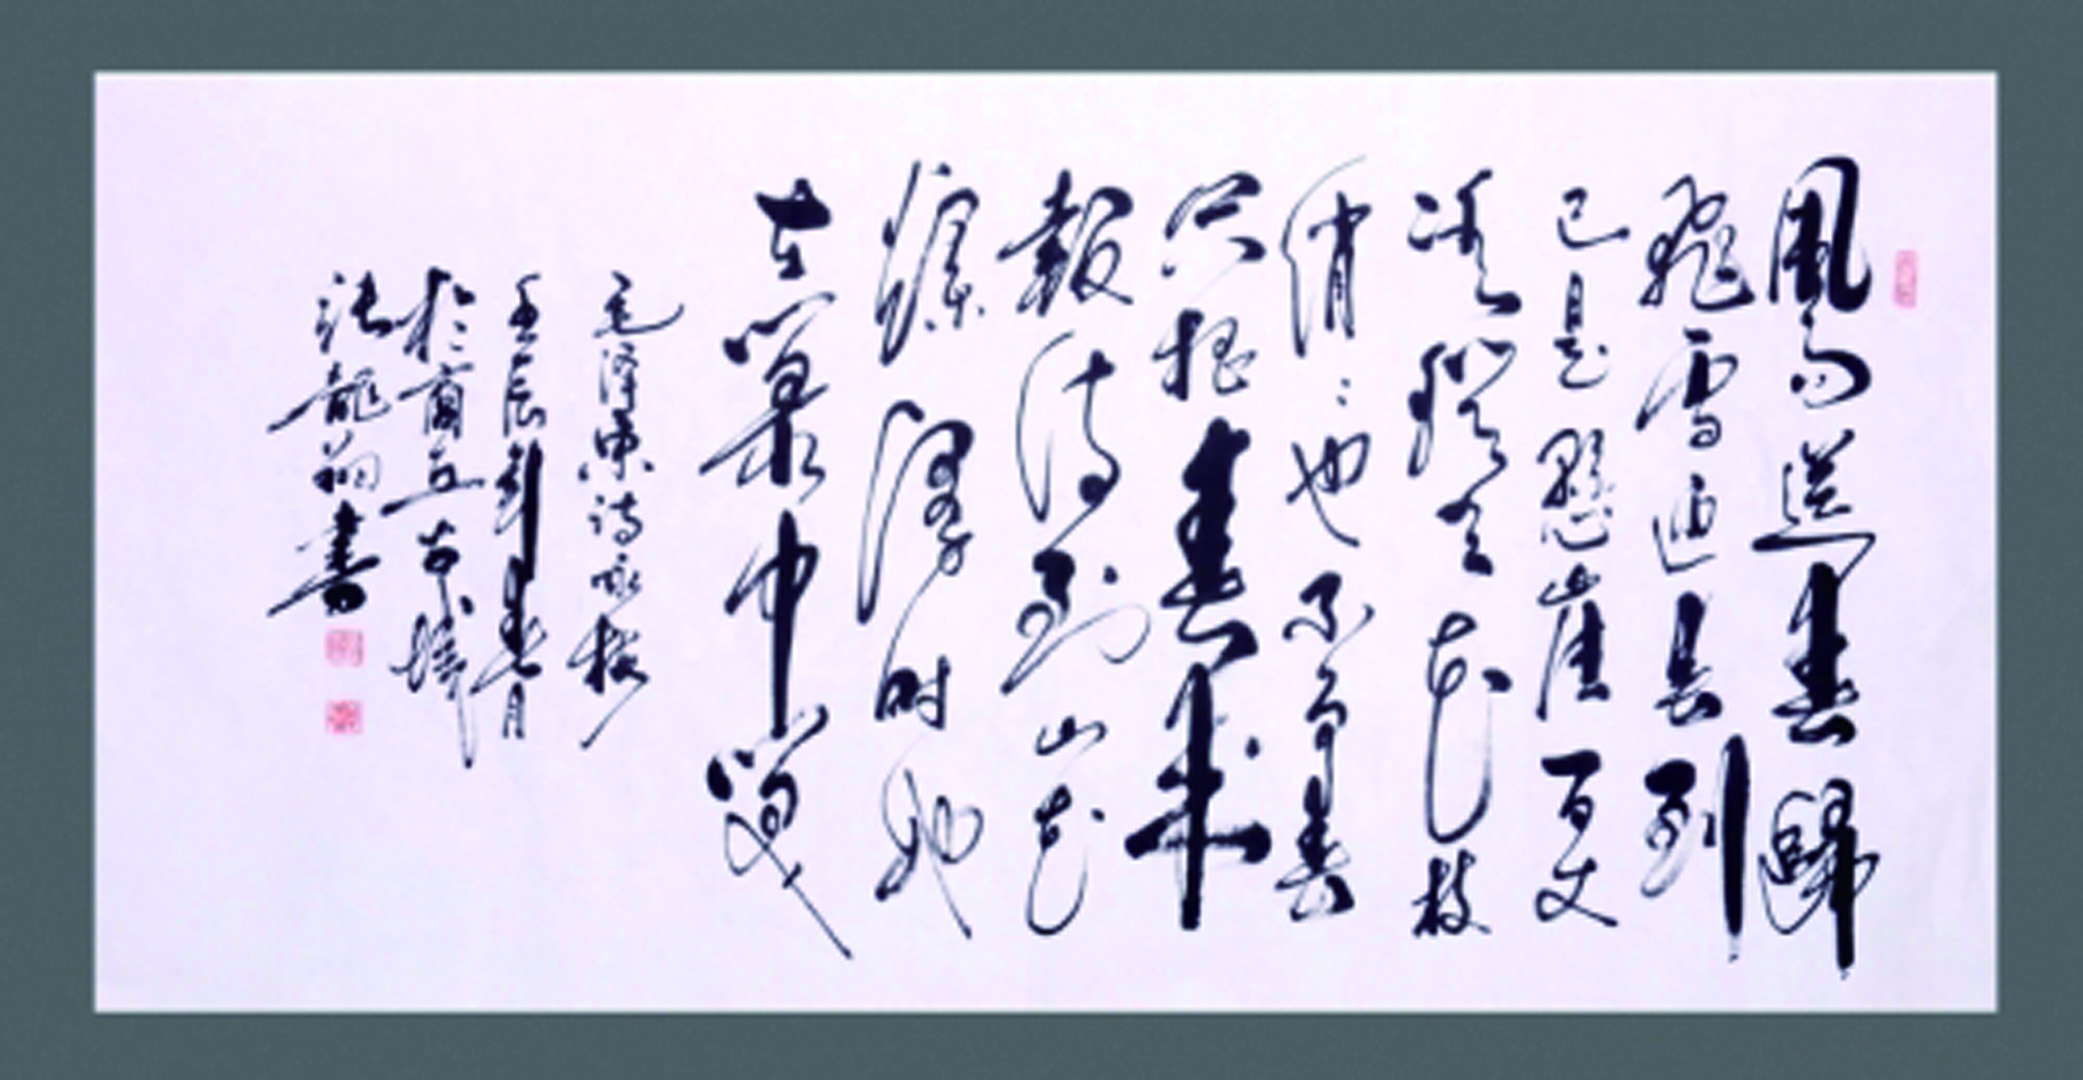 風雨送春歸
飛雪迎春到
已是懸崖百丈
冰猶有花枝
俏〻也不争春
只把春来
報待到山花
爛漫时她
在叢中笑
毛泽東詩咏梅
壬辰春月
於商丘古城
張龍翔書